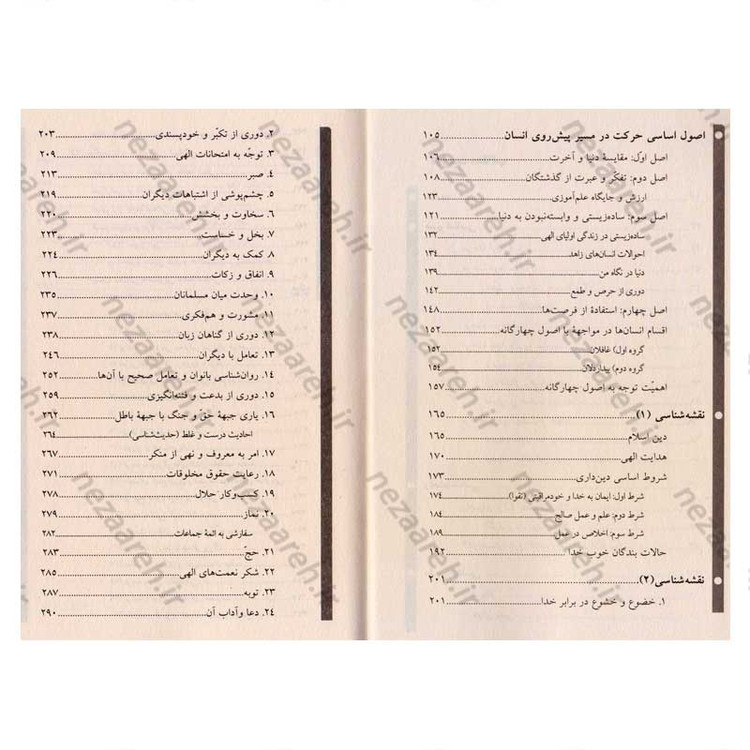 اصول اساسی حرکت در مسیر پیش‌روی انسان ۱۰۵
اصل اوّل: مقایسهٔ دنیا و آخرت ۱۰۶
اصل دوم: تفکّر و عبرت از گذشتگان ۱۰۸
ارزش و جایگاه علم‌آموزی ۱۲۳
اصل سوم: ساده‌زیستی و وابسته‌نبودن به دنیا ۱۲۱
ساده‌زیستی در زندگی اولیای الهی ۱۳۲
احوالات انسان‌های زاهد ۱۳۴
دنیا در نگاه من ۱۳۹
دوری از حرص و طمع ۱۴۲
اصل چهارم: استفاده از فرصت‌ها ۱۴۸
اقسام انسان‌ها در مواجهه با اصول چهارگانه ۱۵۲
گروه اول) غافلان ۱۵۲
گروه دوم) بیداردلان ۱۵۴
اهمیّت توجه به اصول چهارگانه ۱۵۷
نقشه‌شناسی (۱) ۱۶۵
دین اسلام ۱۶۵
هدایت الهی ۱۷۰
شروط اساسی دین‌داری ۱۷۳
شرط اول: ایمان به خدا و خودمراقبتی (تقوا) ۱۷۴
شرط دوم: علم و عمل صالح ۱۸۴
شرط سوم: اخلاص در عمل ۱۸۹
حالات بندگان خوب خدا ۱۹۲
نقشه‌شناسی (۲) ۲۰۱
۱. خضوع و خشوع در برابر خدا ۲۰۱
۲. دوری از تکبّر و خودپسندی ۲۰۳
۳. توجّه به امتحانات الهی ۲۰۹
۴. صبر ۲۱۳
۵. چشم‌پوشی از اشتباهات دیگران ۲۱۹
۶. سخاوت و بخشش ۲۲۰
۷. بخل و خساست ۲۲۳
۸. کمک به دیگران ۲۲۴
۹. انفاق و زکات ۲۲۶
۱۰. وحدت میان مسلمانان ۲۳۵
۱۱. مشورت و هم‌فکری ۲۳۷
۱۲. دوری از گناهان زبان ۲۳۸
۱۳. تعامل با دیگران ۲۴۶
۱۴. روان‌شناسی بانوان و تعامل صحیح با آن‌ها ۲۵۲
۱۵. دوری از بدعت و فتنه‌انگیزی ۲۵۹
۱۶. یاری جبههٔ حق و جنگ با جبههٔ باطل ۲۶۲
احادیث درست و غلط (حدیث‌شناسی) ۲۶۴
۱۷. امر به معروف و نهی از منکر ۲۶۷
۱۸. رعایت حقوق مخلوقات ۲۷۱
۱۹. کسب‌وکار حلال ۲۷۸
۲۰. نماز ۲۷۹
سفارشی به ائمهٔ جماعات ۲۸۲
۲۱. حجّ ۲۸۳
۲۲. شکر نعمت‌های الهی ۲۸۵
۲۳. توبه ۲۸۷
۲۴. دعا وآداب آن ۲۹۰
nezaareh.ir